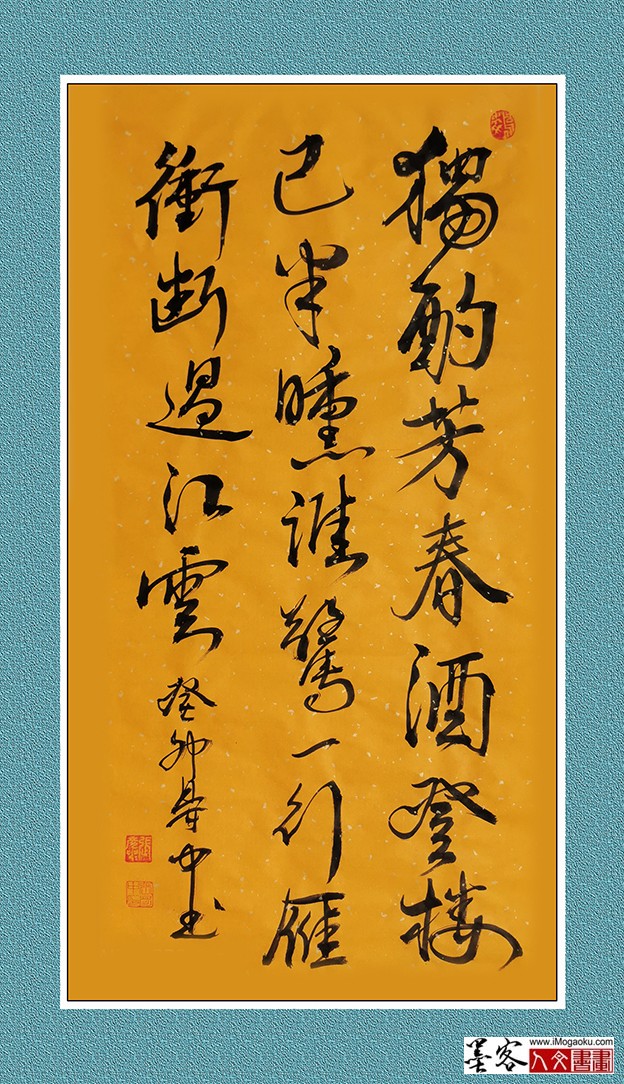 獨酌芳春酒登楼
已半曛誰驚一行雁
衝断過江雲
癸卯 中书
www.iMogaoku.com
墨客人文書畫